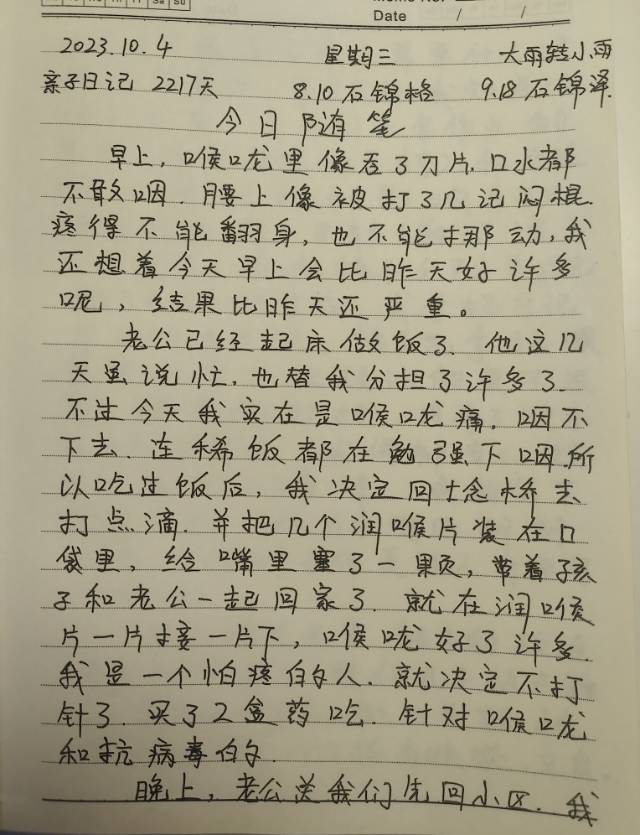 Fr Sa Su
Memo No.
Date / /
2023.10.4 星期三 大雨转小雨
亲子日记 2217天 8.10石锦格 9.18石锦泽
今日随笔
早上,喉咙里像吞了刀片,口水都
不敢咽.腰上像被打了几记闷棍.
疼得不能翻身,也不能挪动,我
还想着今天早上会比昨天好许多
呢,结果比昨天还严重。
老公已经起床做饭了.他这几
天虽说忙,也替我分担了许多了.
不过今天我实在是喉咙痛.咽不
下去.连稀饭都在勉强下咽.所
以吃过饭后,我决定回埝桥去
打点滴.并把几个润喉片装在口
袋里,给嘴里塞了一颗,带着孩
子和老公一起回家了.就在润喉
片一片接一片下,喉咙好了许多.
我是一个怕疼的人.就决定不打
针了.买了2盒药吃.针对喉咙
和抗病毒的.
晚上,老公送我们先回小区.我